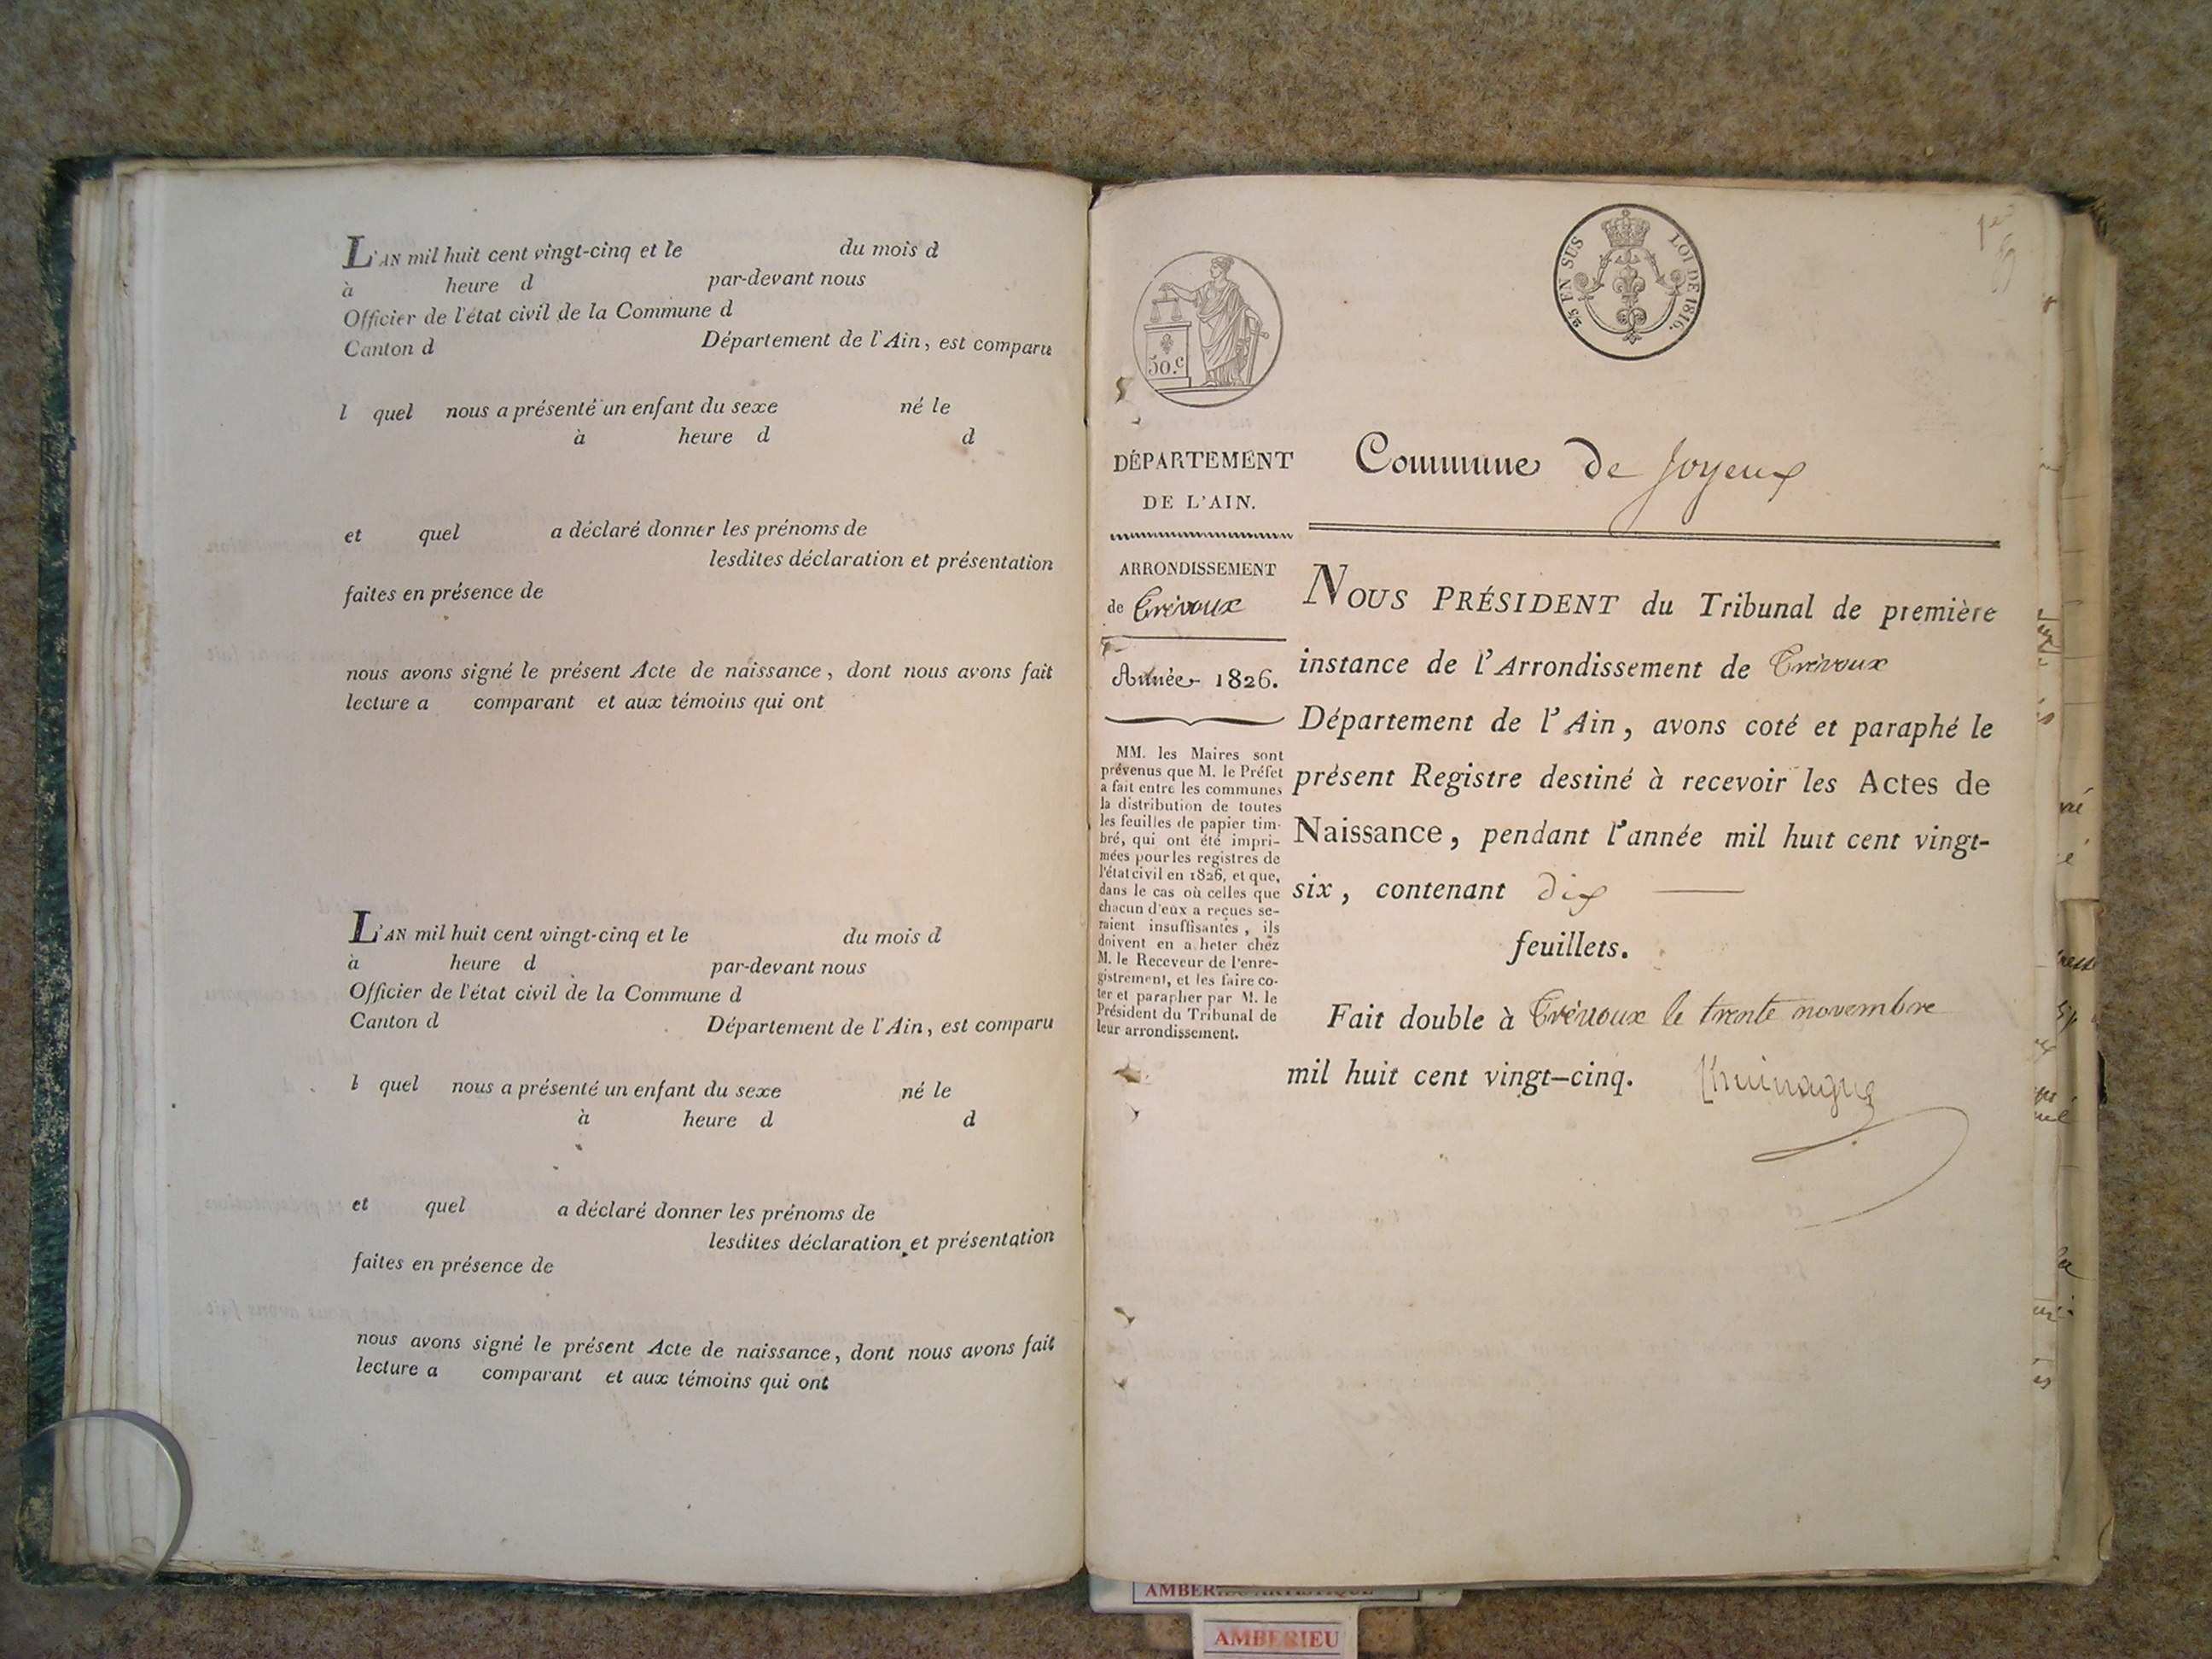 L'AN mil huit cent vingt-cinq et le du mois d
à heure d par-devant nous
Officier de l'état civil de la Commune d
Canton d Département de l'Ain, est comparu
l quel nous a présenté un enfant du sexe né le
à heure d d
et quel a déclaré donner les prénoms de
lesdites déclaration et présentation
faites en présence de
nous avons signé le présent Acte de naissance, dont nous avons fait
lecture a comparant et aux témoins qui ont
L'AN mil huit cent vingt-cinq et le du mois d
à heure d par-devant nous
Officier de l'état civil de la Commune d
Canton d Département de l'Ain, est comparu
l quel nous a présenté un enfant du sexe né le
à heure d d
et quel a déclaré donner les prénoms de
lesdites déclaration et présentation
faites en présence de
nous avons signé le présent Acte de naissance, dont nous avons fait
lecture a comparant et aux témoins qui ont
50.c
25 EN SUS LOI DE 1816.
1er
DÉPARTEMENT
DE L'AIN.
ARRONDISSEMENT
de Trévoux
Année 1826.
MM. les Maires sont
prévenus que M. le Préfet
a fait entre les communes
la distribution de toutes
les feuilles de papier tim-
bré, qui ont été impri-
mées pour les registres de
l'état civil en 1826, et que,
dans le cas où celles que
chacun d'eux a reçues se-
raient insuffisantes, ils
doivent en acheter chez
M. le Receveur de l'enre-
gistrement, et les faire co-
ter et parapher par M. le
Président du Tribunal de
leur arrondissement.
Commune de Joyeux
NOUS PRÉSIDENT du Tribunal de première
instance de l'Arrondissement de Trévoux
Département de l'Ain, avons coté et paraphé le
présent Registre destiné à recevoir les Actes de
Naissance, pendant l'année mil huit cent vingt-
six, contenant dix
feuillets.
Fait double à Trévoux le trente novembre
mil huit cent vingt-cinq.
AMBERIEU